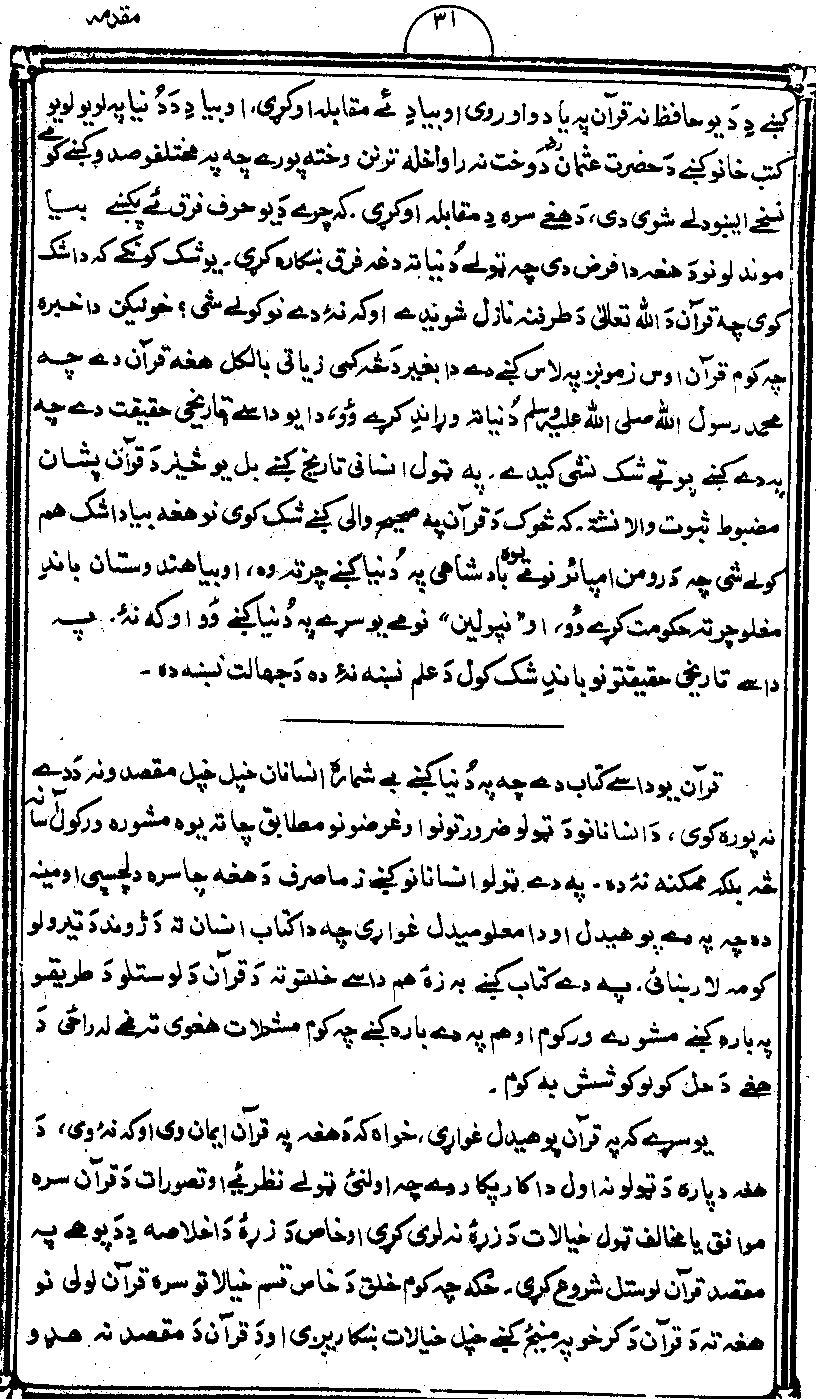 مقدمه
۳۱
کښے دِ دَ یو حافظ نه قرآن په یاد واوروی او بیا دِ ئے مقابله اوکړی، او بیا دِ دَ دُنیا په لویو لویو
کتب خانو کښے دَ حضرت عثمانؓ دَ وخت نه را واخله تر نن وخته پورے چه په مختلفو صدو کښے کومے
نسخے ایښودلے شوی دی، دَ هغے سره دِ مقابله اوکړی. که چرے دَ یو حرف فرق ئے پکښے بیا
موندلو نو دَ هغه دا فرض دی چه ټولے دُنیا ته دغه فرق ښکاره کړی۔ یو شک کونکے که دا شک
کوی چه قرآن دَ الله تعالیٰ دَ طرفنه نازل شویدے اوکه نهٔ دے نو کولے شی؟ خولیکن دا خبره
چه کوم قرآن اوس زمونږ په لاس کښے دے دا بغیر دَ څه کمی زیاتی بالکل هغه قرآن دے چه
محمد رسول الله صلی الله علیه وسلم دُنیا ته وړاندِ کړے وُو، دا یو داسے تاریخی حقیقت دے چه
په دے کښے یو تے شک نشی کیدے۔ په ټول انسانی تاریخ کښے بل یو څیز دَ قرآن پشان
مضبوط ثبوت والا نشته. که څوک دَ قرآن په صحیح والی کښے شک کوی نو هغه بیا دا شک هم
کولے شی چه دَ رومن امپائر نومے یوه باد شاهی په دُنیا کښے چرته وه، او بیا هندوستان باندِ
مغلو چرته حکومت کړے وُو، او “نپولین” نومے یو سرے په دُنیا کښے وُو اوکه نهٔ. په
داسے تاریخی حقیقتونو باندِ شک کول دَ علم نښه نهٔ ده دَ جهالت نښه ده۔
قرآن یو داسے کتاب دے چه په دُنیا کښے بے شماره انسانان خپل خپل مقصدونه دَ دے
نه پوره کوی، دَ انسانانو دَ ټولو ضرورتونو او غرضونو مطابق چا ته یوه مشوره ورکول آسانه
څه بلکه ممکنه نهٔ ده۔ په دے ټولو انسانانو کښے زما صرف دَ هغه چا سره دلچسپی او مینه
ده چه په دے پوهیدل او دا معلومیدل غواری چه دا کتاب انسان ته دَ ژوند دَ تیرولو
کومه لار ښائی. په دے کتاب کښے به زهٔ هم داسے خلقو ته دَ قرآن دَ لوستلو دَ طریقو
په باره کښے مشورے ورکوم او هم په دے باره کښے چه کوم مشکلات هغوی ته مخے له راځی دَ
هغے دَ حل کولو کوشش به کوم۔
یو سرے که په قرآن پوهیدل غواری، خواه که دَ هغه په قرآن ایمان وی اوکه نهٔ وی، دَ
هغه دپاره دَ ټولو نه اول دا کار پکار دے چه اولنئ ټولے نظرئے او تصورات دَ قرآن سره
موافق یا مخالف ټول خیالات دَ زړهٔ نه لری کړی او خاص دَ زړهٔ دَ اخلاصه دِ دَ پوهے په
مقصد قرآن لوستل شروع کړی۔ ځکه چه کوم خلق دَ خاص قسم خیالاتو سره قرآن لولی نو
هغه ته دَ قرآن دَ کرخو په مینځ کښے خپل خیالات ښکاریږی او دَ قرآن دَ مقصد نه هډو